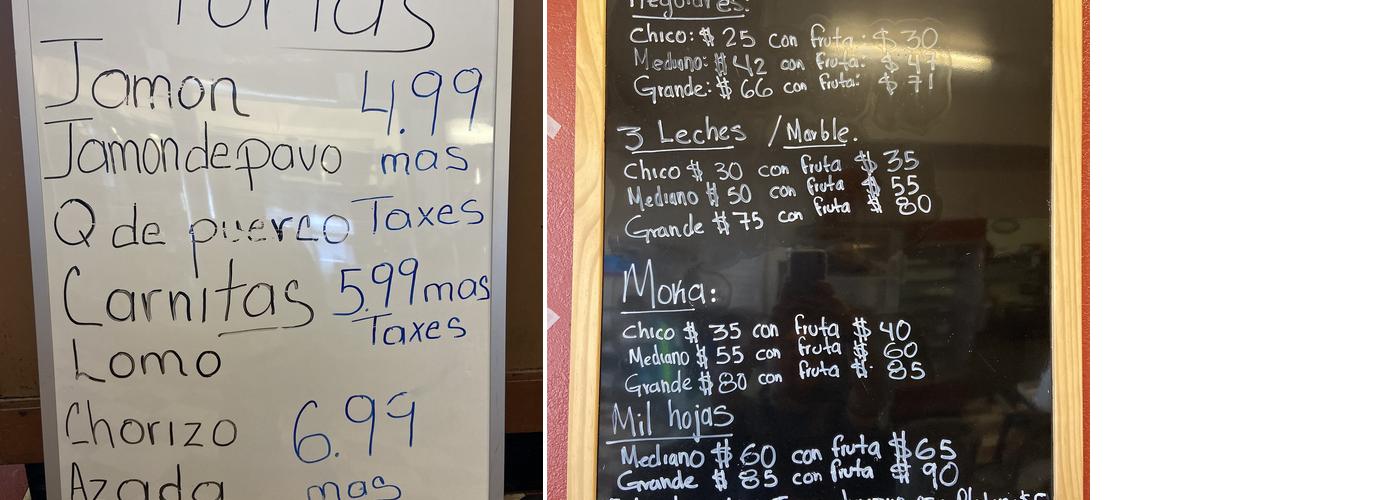 Tortas
Jamon 4.99
Jamon de pavo mas
Q de puerco Taxes
Carnitas 5.99 mas
Taxes
Lomo
Chorizo 6.99
Azada mas
Regulares:
Chico: $ 25 con fruta: $ 30
Mediano: $ 42 con fruta: $ 47
Grande: $ 66 con fruta: $ 71
3 Leches / Marble.
Chico $ 30 con fruta $ 35
Mediano $ 50 con fruta $ 55
Grande $ 75 con fruta $ 80
Moka:
Chico $ 35 con fruta $ 40
Mediano $ 55 con fruta $ 60
Grande $ 80 con fruta $ 85
Mil hojas
Mediano $ 60 con fruta $ 65
Grande $ 85 con fruta $ 90